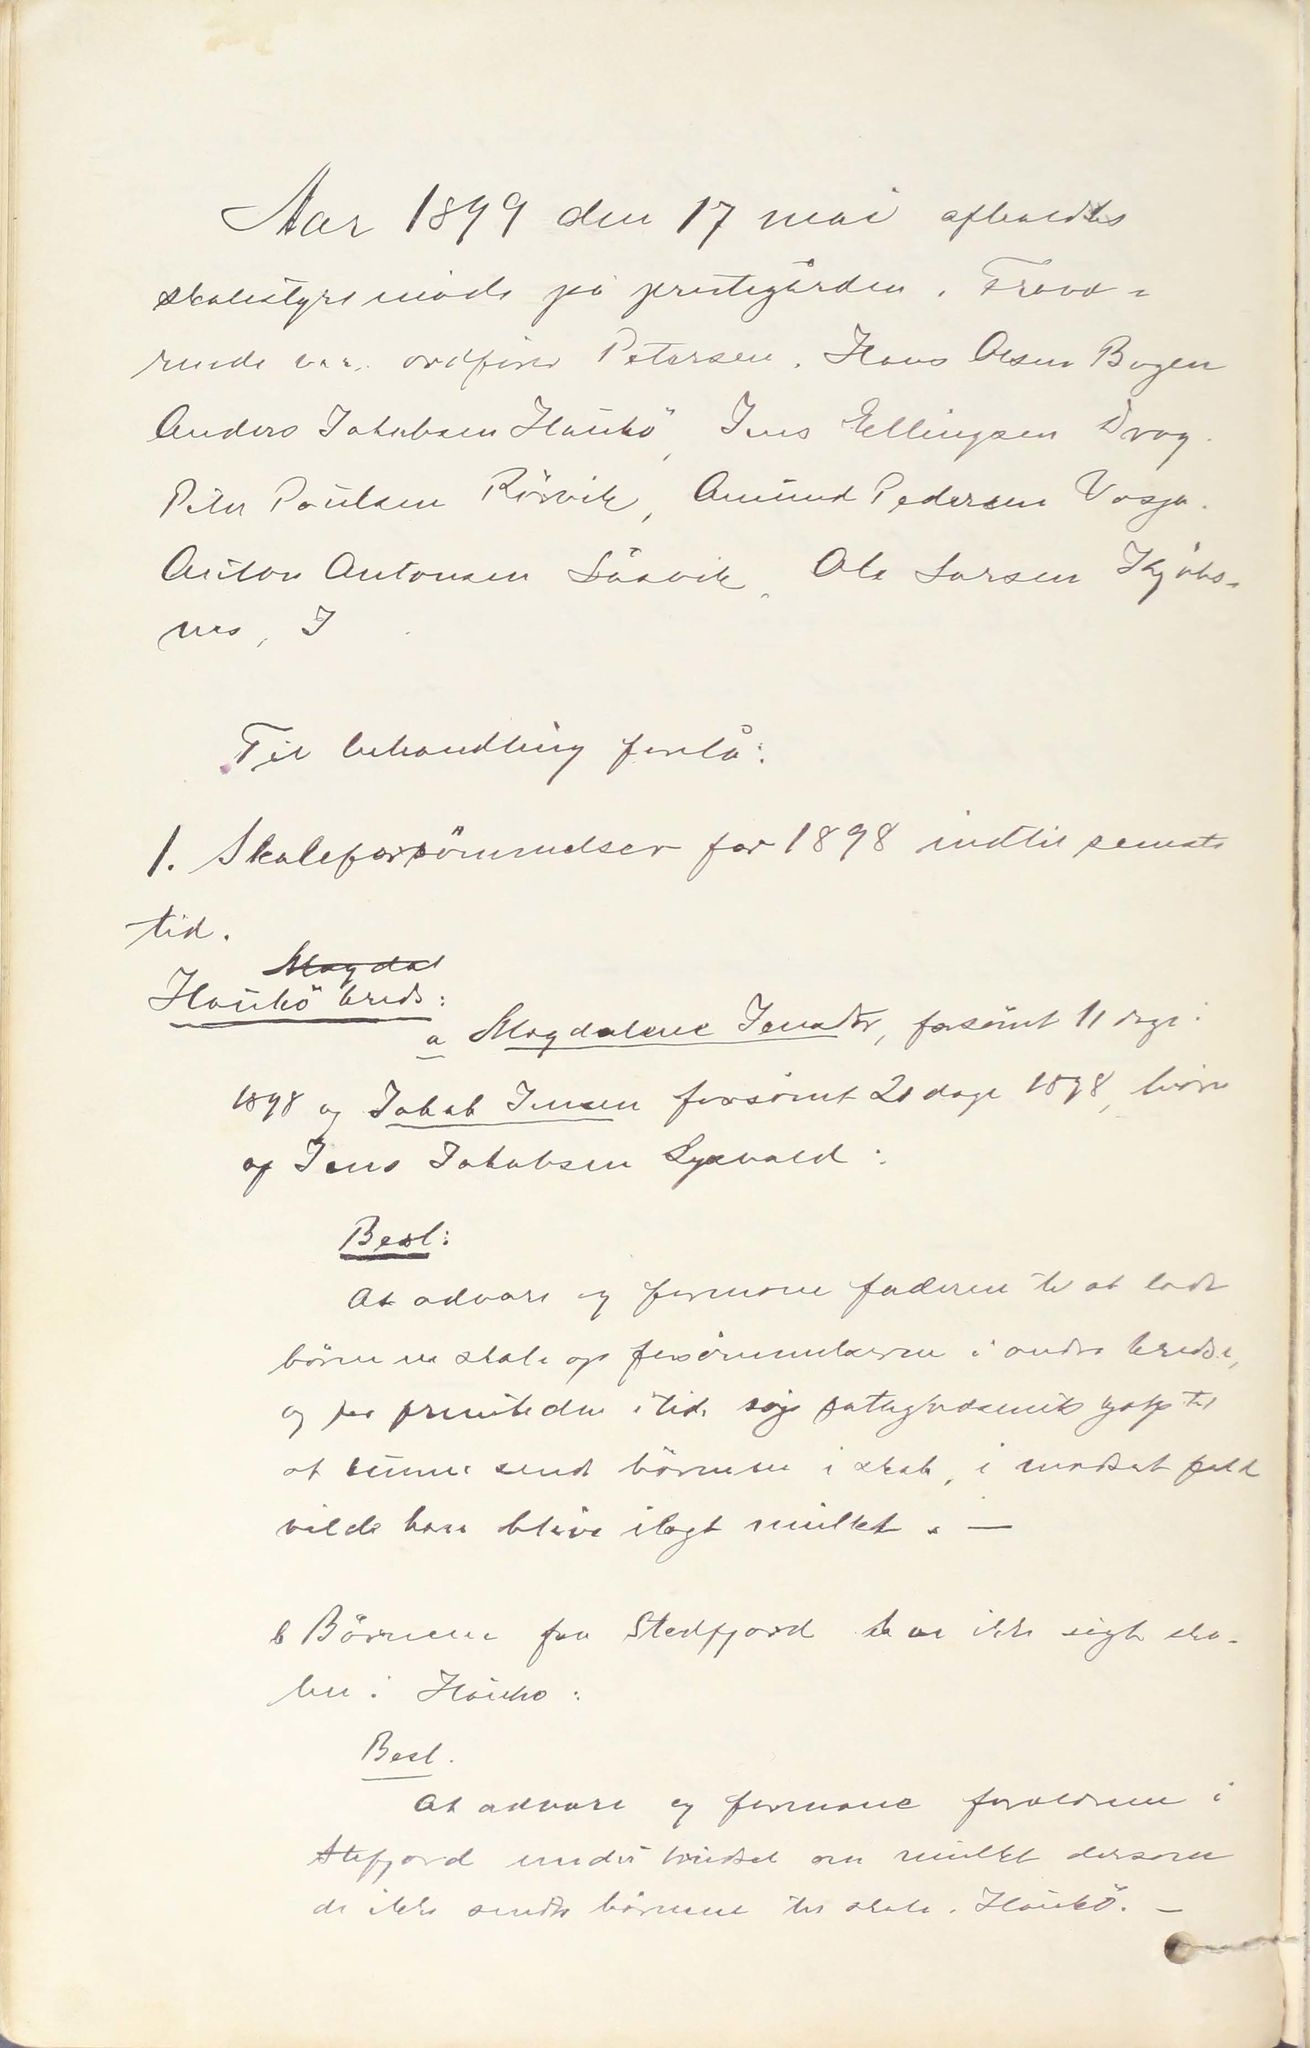 Aar 1899 den 17 mai afholdtes
skolestyremøde på prestegården. Frevæ-
rende var. ordfører Petersen. Hans Olsen Bogen
Anders Jakobsen Haukö, Jens Ellingsen Drag.
Peter Paulsen Rörvik, Amund Pedersen Vasja.
Anton Antonsen Låavik, Ole Larsen Kjöbs-
nes, I
Til behandling forelå:
1. Skoleforsömmelser for 1898 indtil seneste
tid.
Magdal
Haukö kreds:
a Magdalene Jensdtr, forsömt 11 dage i
1898 og Jakob Jensen forsömt 21 dage 1898, børn
af Jens Jakobsen Lyxvold:
Besl:
At advare og formane faderen til at lade
börnene skole og forsömmelserne i andre kredse,
og for fremtiden itide søge fattigvæsenets hjælp til
at kunne sende börnene i skole, i modsat fald
vilde han blive ilagt mulkt. —
b Börnene fra Stedfjord har ikke sögt sko-
len i Haukö:
Besl.
At advare og formane forældrene i
Stefjord under trudsel om mulkt dersom
de ikke sender börnene til skole i Haukö. —